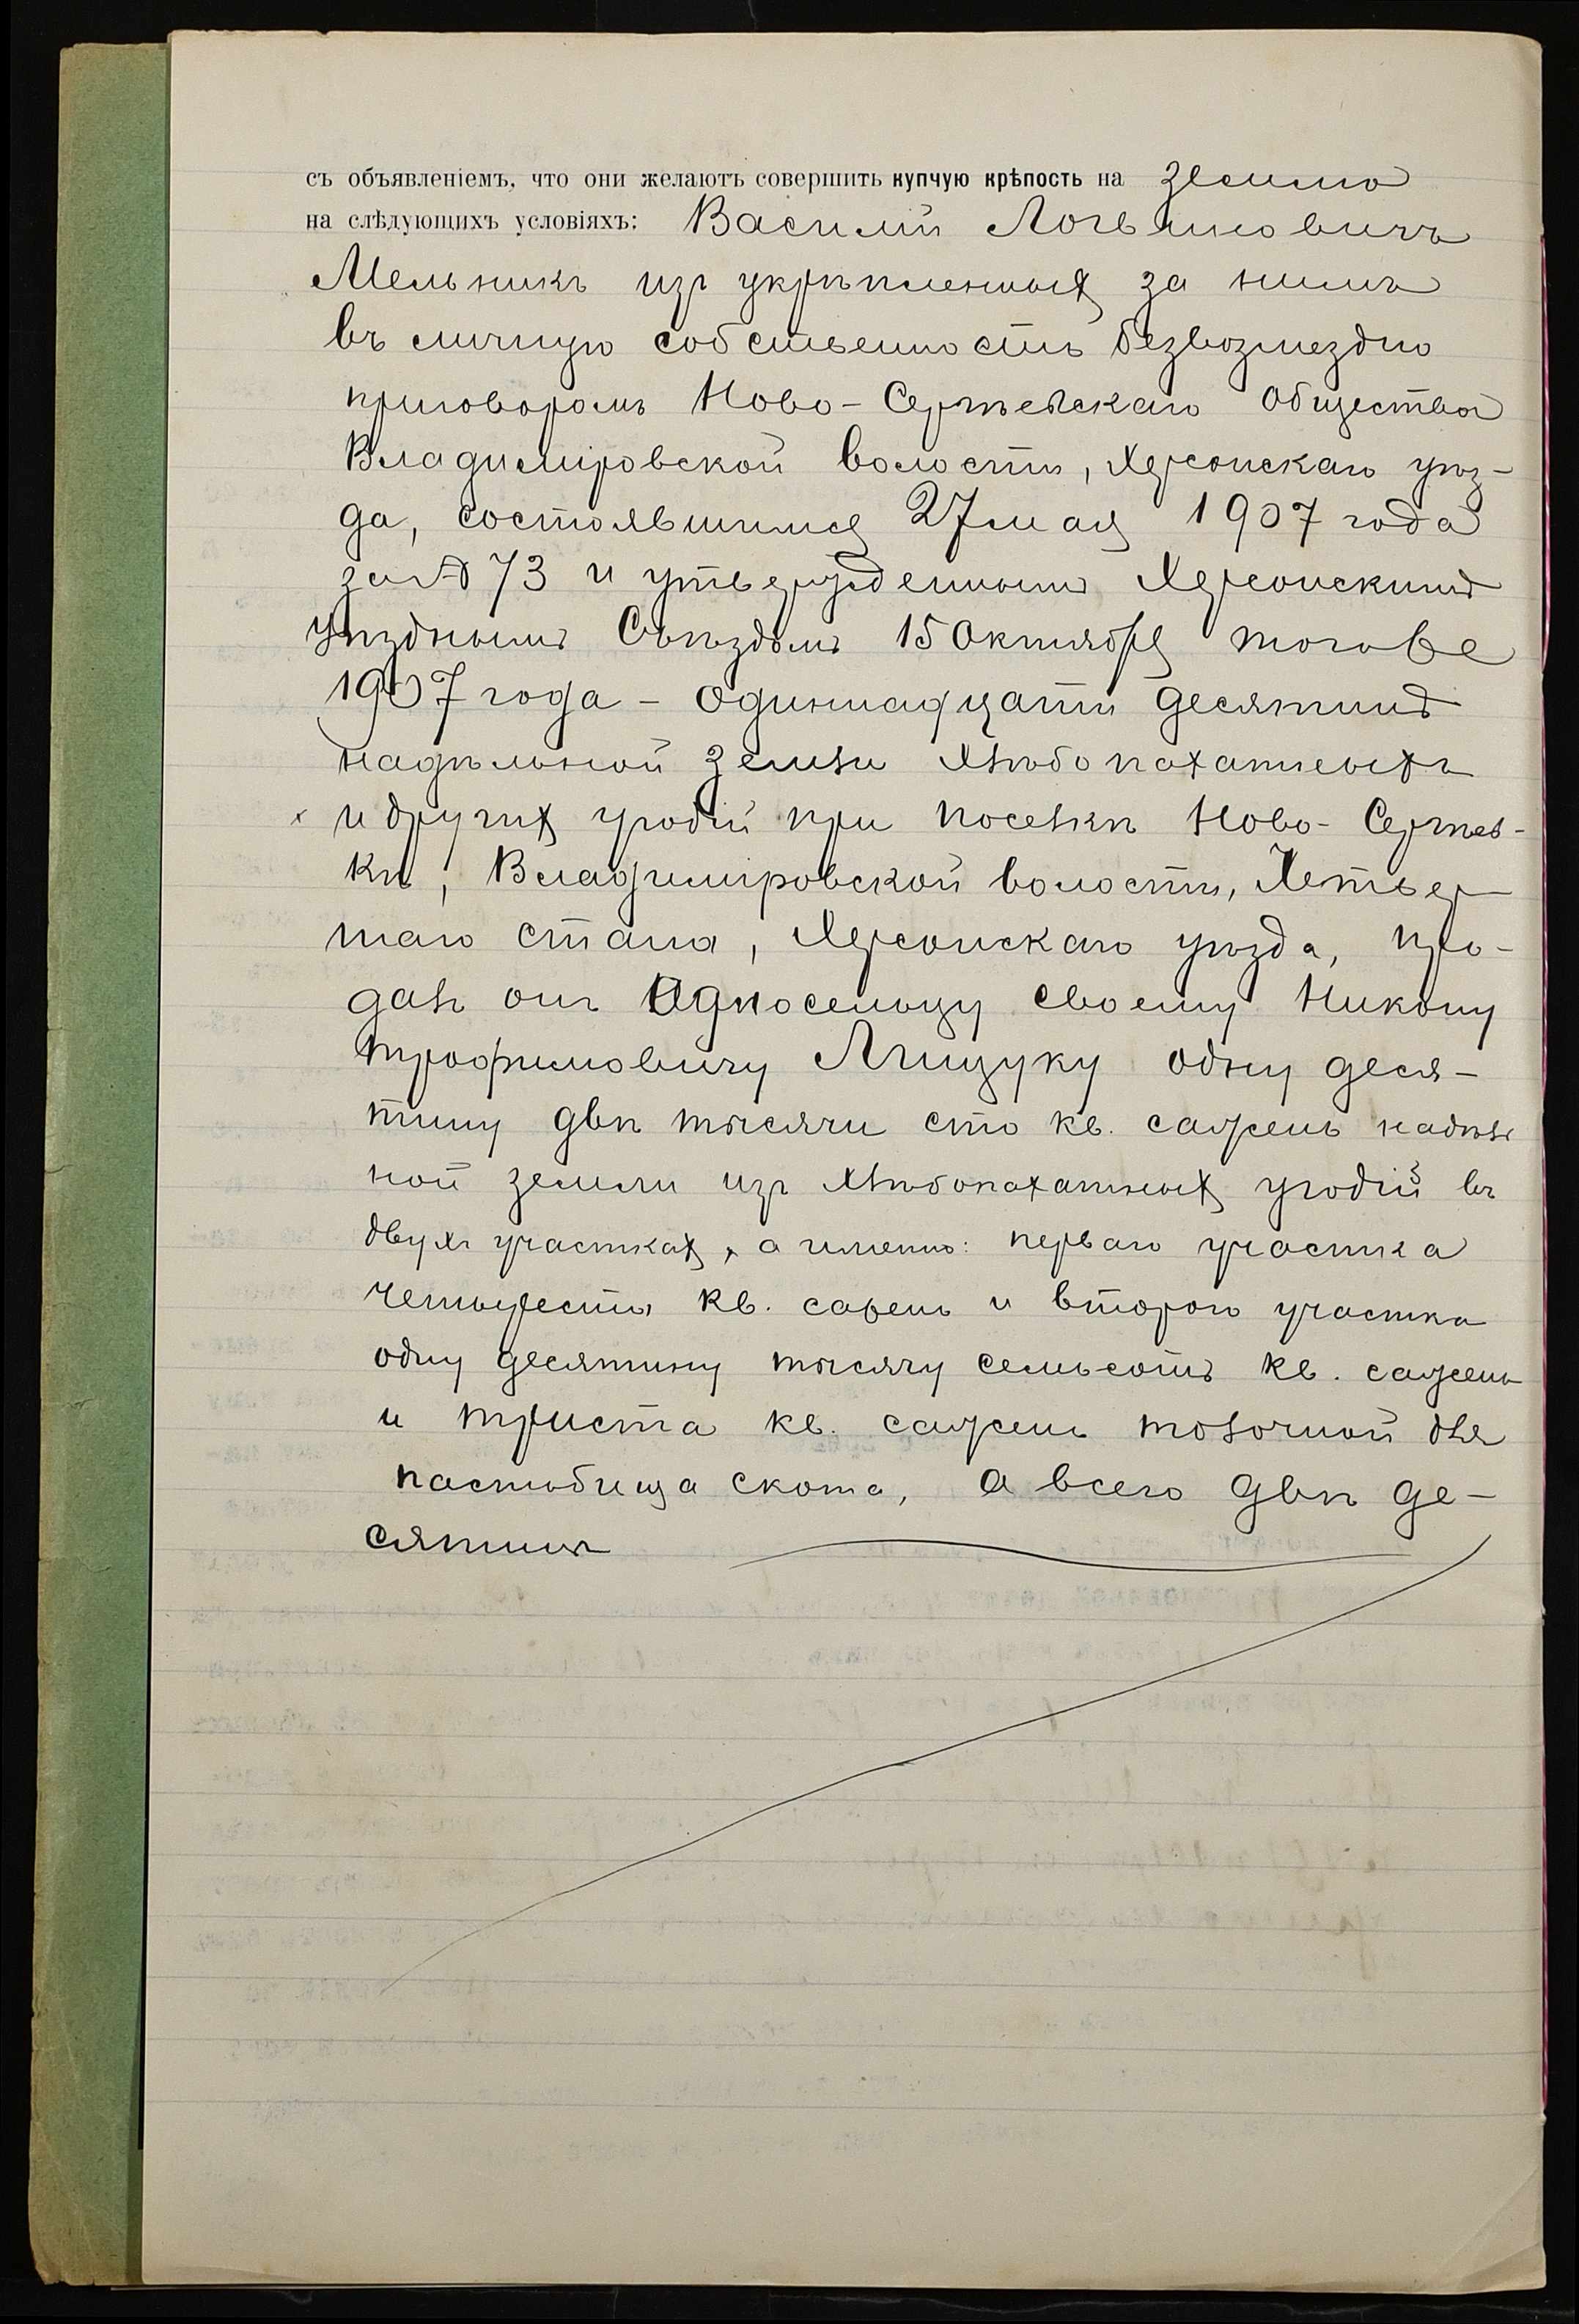 съ объявленіемъ, что они желаютъ совершить купчую крѣпость на землю
на слѣдующихъ условіяхъ: Василій Логвиновичъ
Мельникъ изъ укрѣпленныхъ за нимъ
въ личную собственность безвозмездно
приговоромъ Ново-Сергѣевскаго общества
Владимировской волости, Херсонскаго уѣз-
да, состоявшимся 27 мая 1907 года
за № 73 и утвержденнымъ Херсонскимъ
Уѣзднымъ Съѣздомъ 15 Октября того же
1907 года - одиннадцати десятинъ
надѣльной земли хлѣбопахатныхъ
и другихъ угодій при поселкѣ Ново-Сергѣев-
кѣ, Владимировской волости, Четвер-
таго стана, Херсонскаго уѣзда, про-
далъ онъ Односельцу своему Никону
Трофимовичу Лищуку одну деся-
тину двѣ тысячи сто кв. сажень надѣль
ной земли изъ хлѣбопахатныхъ угодій въ
двухъ участкахъ, а именно: перваго участка
четыреста кв. сажень и второго участка
одну десятину тысячу семьсотъ кв. сажень
и триста кв. сажень толочной для
пастбища скота, а всего двѣ де-
сятины